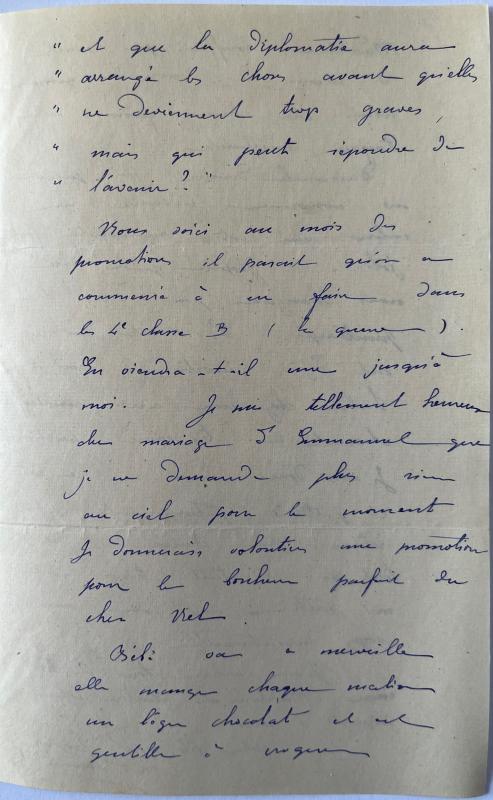 " et que la diplomatie aura
" arrangé les choses avant qu'elles
" ne deviennent trop graves,
" mais qui peut répondre de
" l'avenir ? "
Nous voici au mois des
promotions il parait qu'on a
commencé à en faire dans
les 4e classe B ( la guerre ).
En viendra-t-il une jusqu'à
moi. Je suis tellement heureux
du mariage d'Emmanuel que
je ne demande plus rien
au ciel pour le moment
Je donnerais volontiers une promotion
pour le bonheur parfait du
cher
Bébé va a merveille
elle mange chaque matin
un léger chocolat et est
gentille à croquer